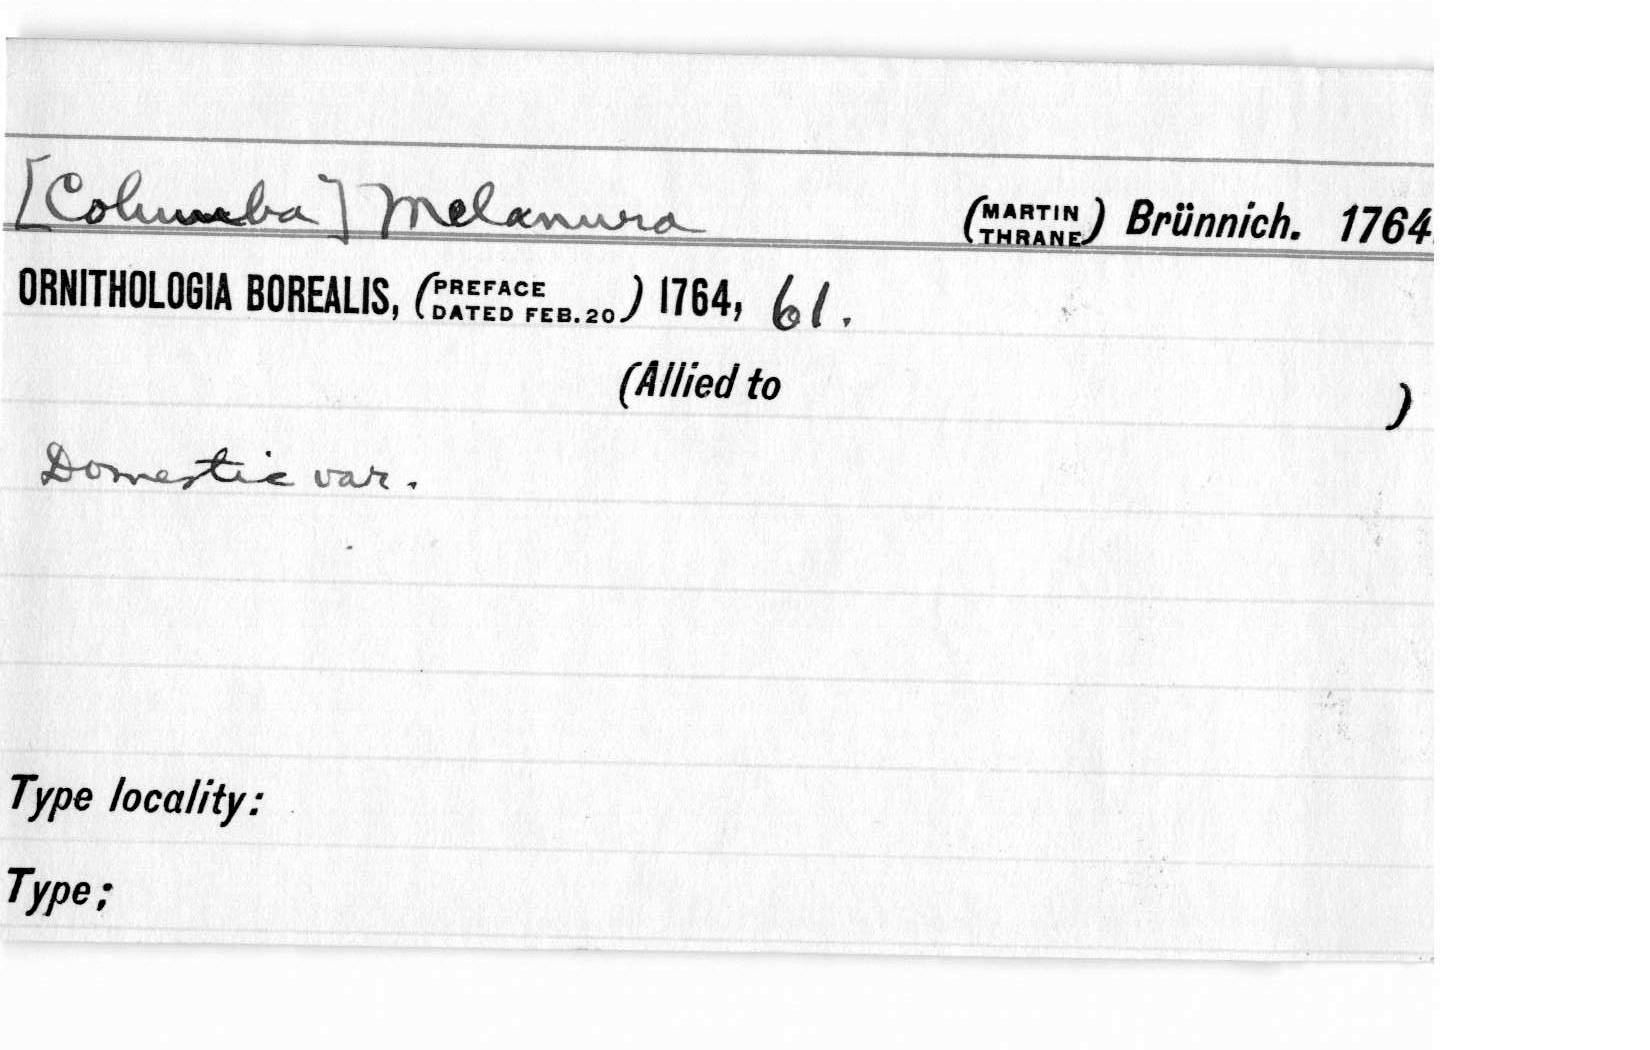 [Columba] Melanura (MARTIN THRANE) Brünnich. 1764.
ORNITHOLOGIA BOREALIS, (PREFACE DATED FEB. 20) 1764, 61.
(Allied to )
Domestic var.
Type locality:
Type;